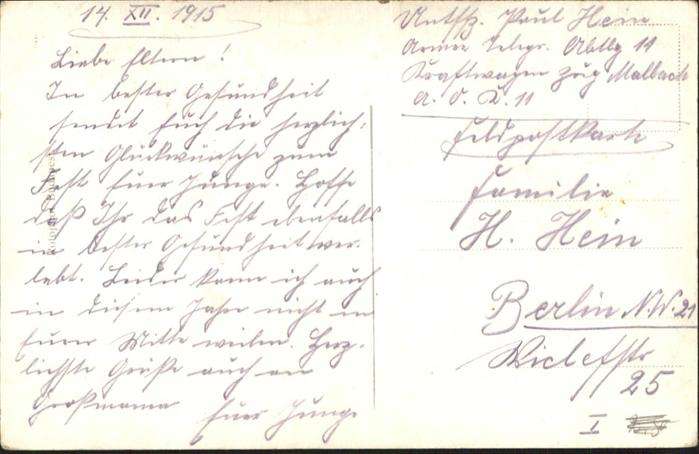 14. XII. 1915
Liebe Eltern!
In bester Gesundheit
sendet Euch die herzlich-
sten Glückwünsche zum
Fest Euer Junge. Hoffe
daß Ihr das Fest ebenfalls
in bester Gesundheit ver-
lebt. Leider kann ich auch
in diesem Jahre nicht in
Eurer Mitte weilen. Herz-
lichste Grüße auch an
Großmama Euer Junge
Untffz. Paul Hein
Armee Telegr. Abtlg 11
Kraftwagen Zug Malbach
A. O. K. 11
Feldpostkarte
Familie
H. Hein
Berlin N.W. 21
Wiclefstr
25
I